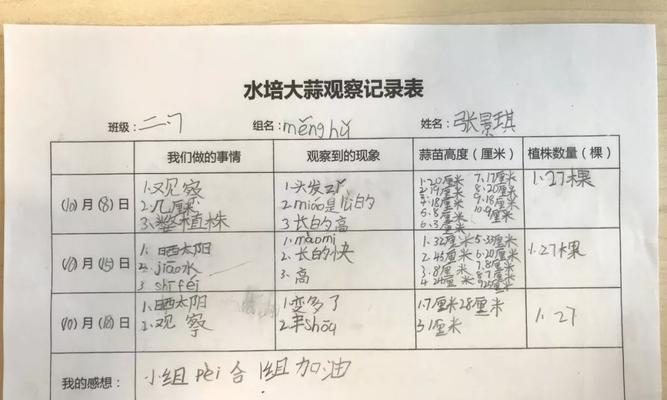 水培大蒜观察记录表
班级: 二、7 组名: měnghǔ 姓名: 张景琪
我们做的事情 观察到的现象 蒜苗高度（厘米） 植株数量（棵）
(10)月(8)日
1.观察
3.整植株
1.头发
2.miáo是白的
3.长白的高
1.20厘米 7.17厘米
2.19厘米 8.20厘米
4.18厘米 9.18厘米
5.8厘米
6.3厘米
1.27棵
月(15)日
1.晒太阳
2.jiāo水
3 shī féi
1.màomi
2.长的快
3.高
1.32厘米 5.33厘米
2.45厘米 6.20厘米
3.8厘米 7.8厘米
1.27棵
(10)月(18)日
1.晒太阳
2.观察
1.变多了
1.7厘米 2.8厘米
3.1厘米
1.27
我的感想: 小组pèi合 1组加油